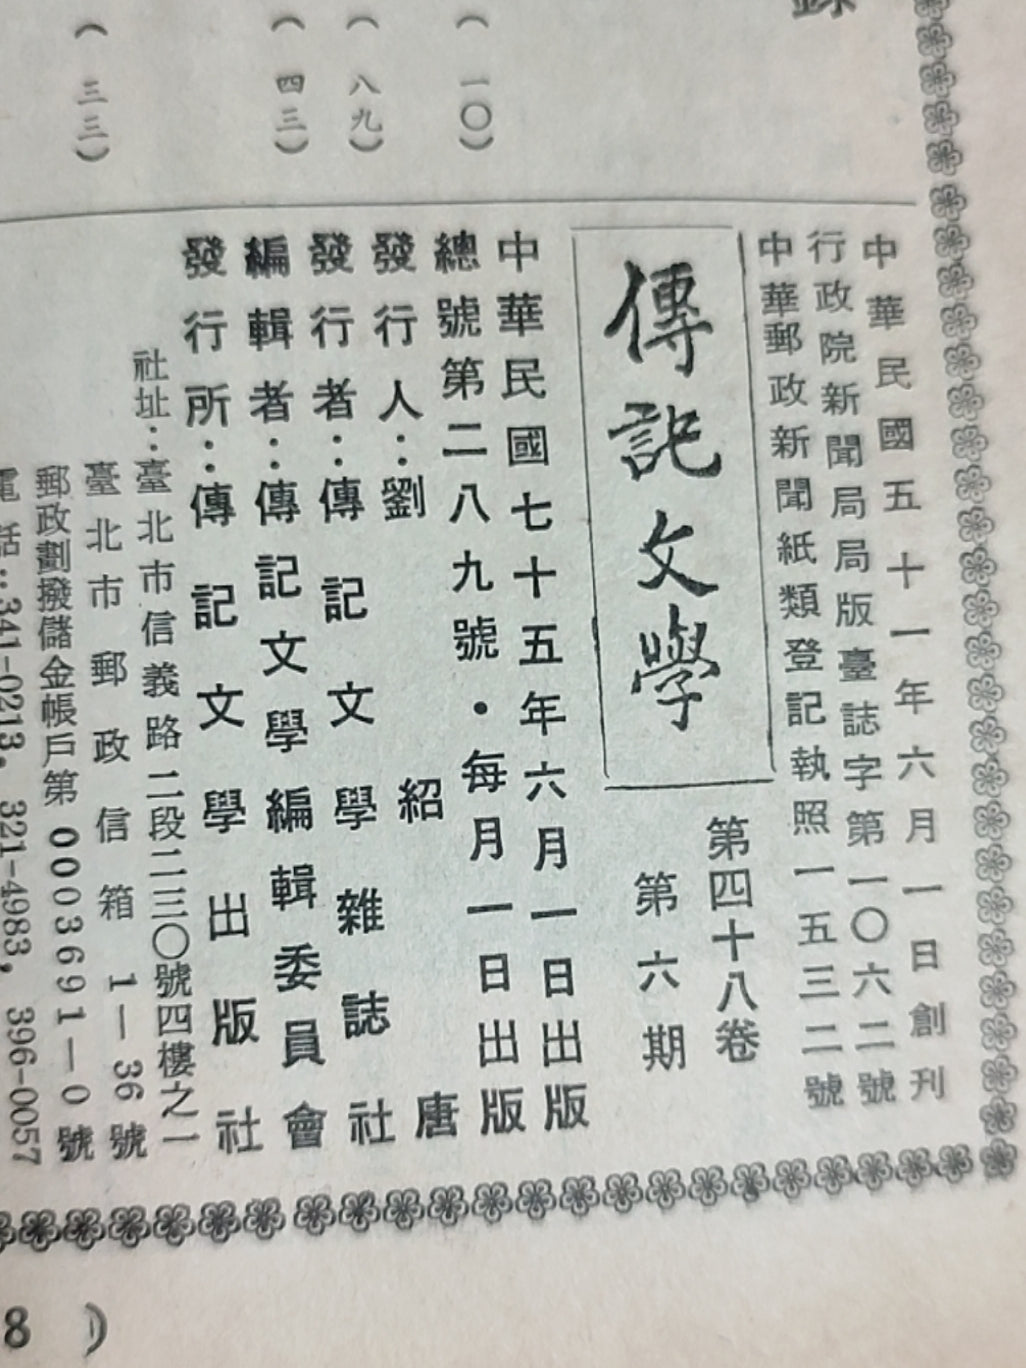 錄
（一〇）
（八九）
（四三）
（三三）
中華民國五十一年六月一日創刊
行政院新聞局局版臺誌字第一〇六二號
中華郵政新聞紙類登記執照一五三二號
傳記文學
第四十八卷
第六期
中華民國七十五年六月一日出版
總號第二八九號・每月一日出版
發行人：劉紹唐
發行者：傳記文學雜誌社
編輯者：傳記文學編輯委員會
發行所：傳記文學出版社
社址：臺北市信義路二段二三〇號四樓之一
臺北市郵政信箱1—36號
郵政劃撥儲金帳戶第0003691—0號
電話：341-0213，321-4983，396-0057
8）